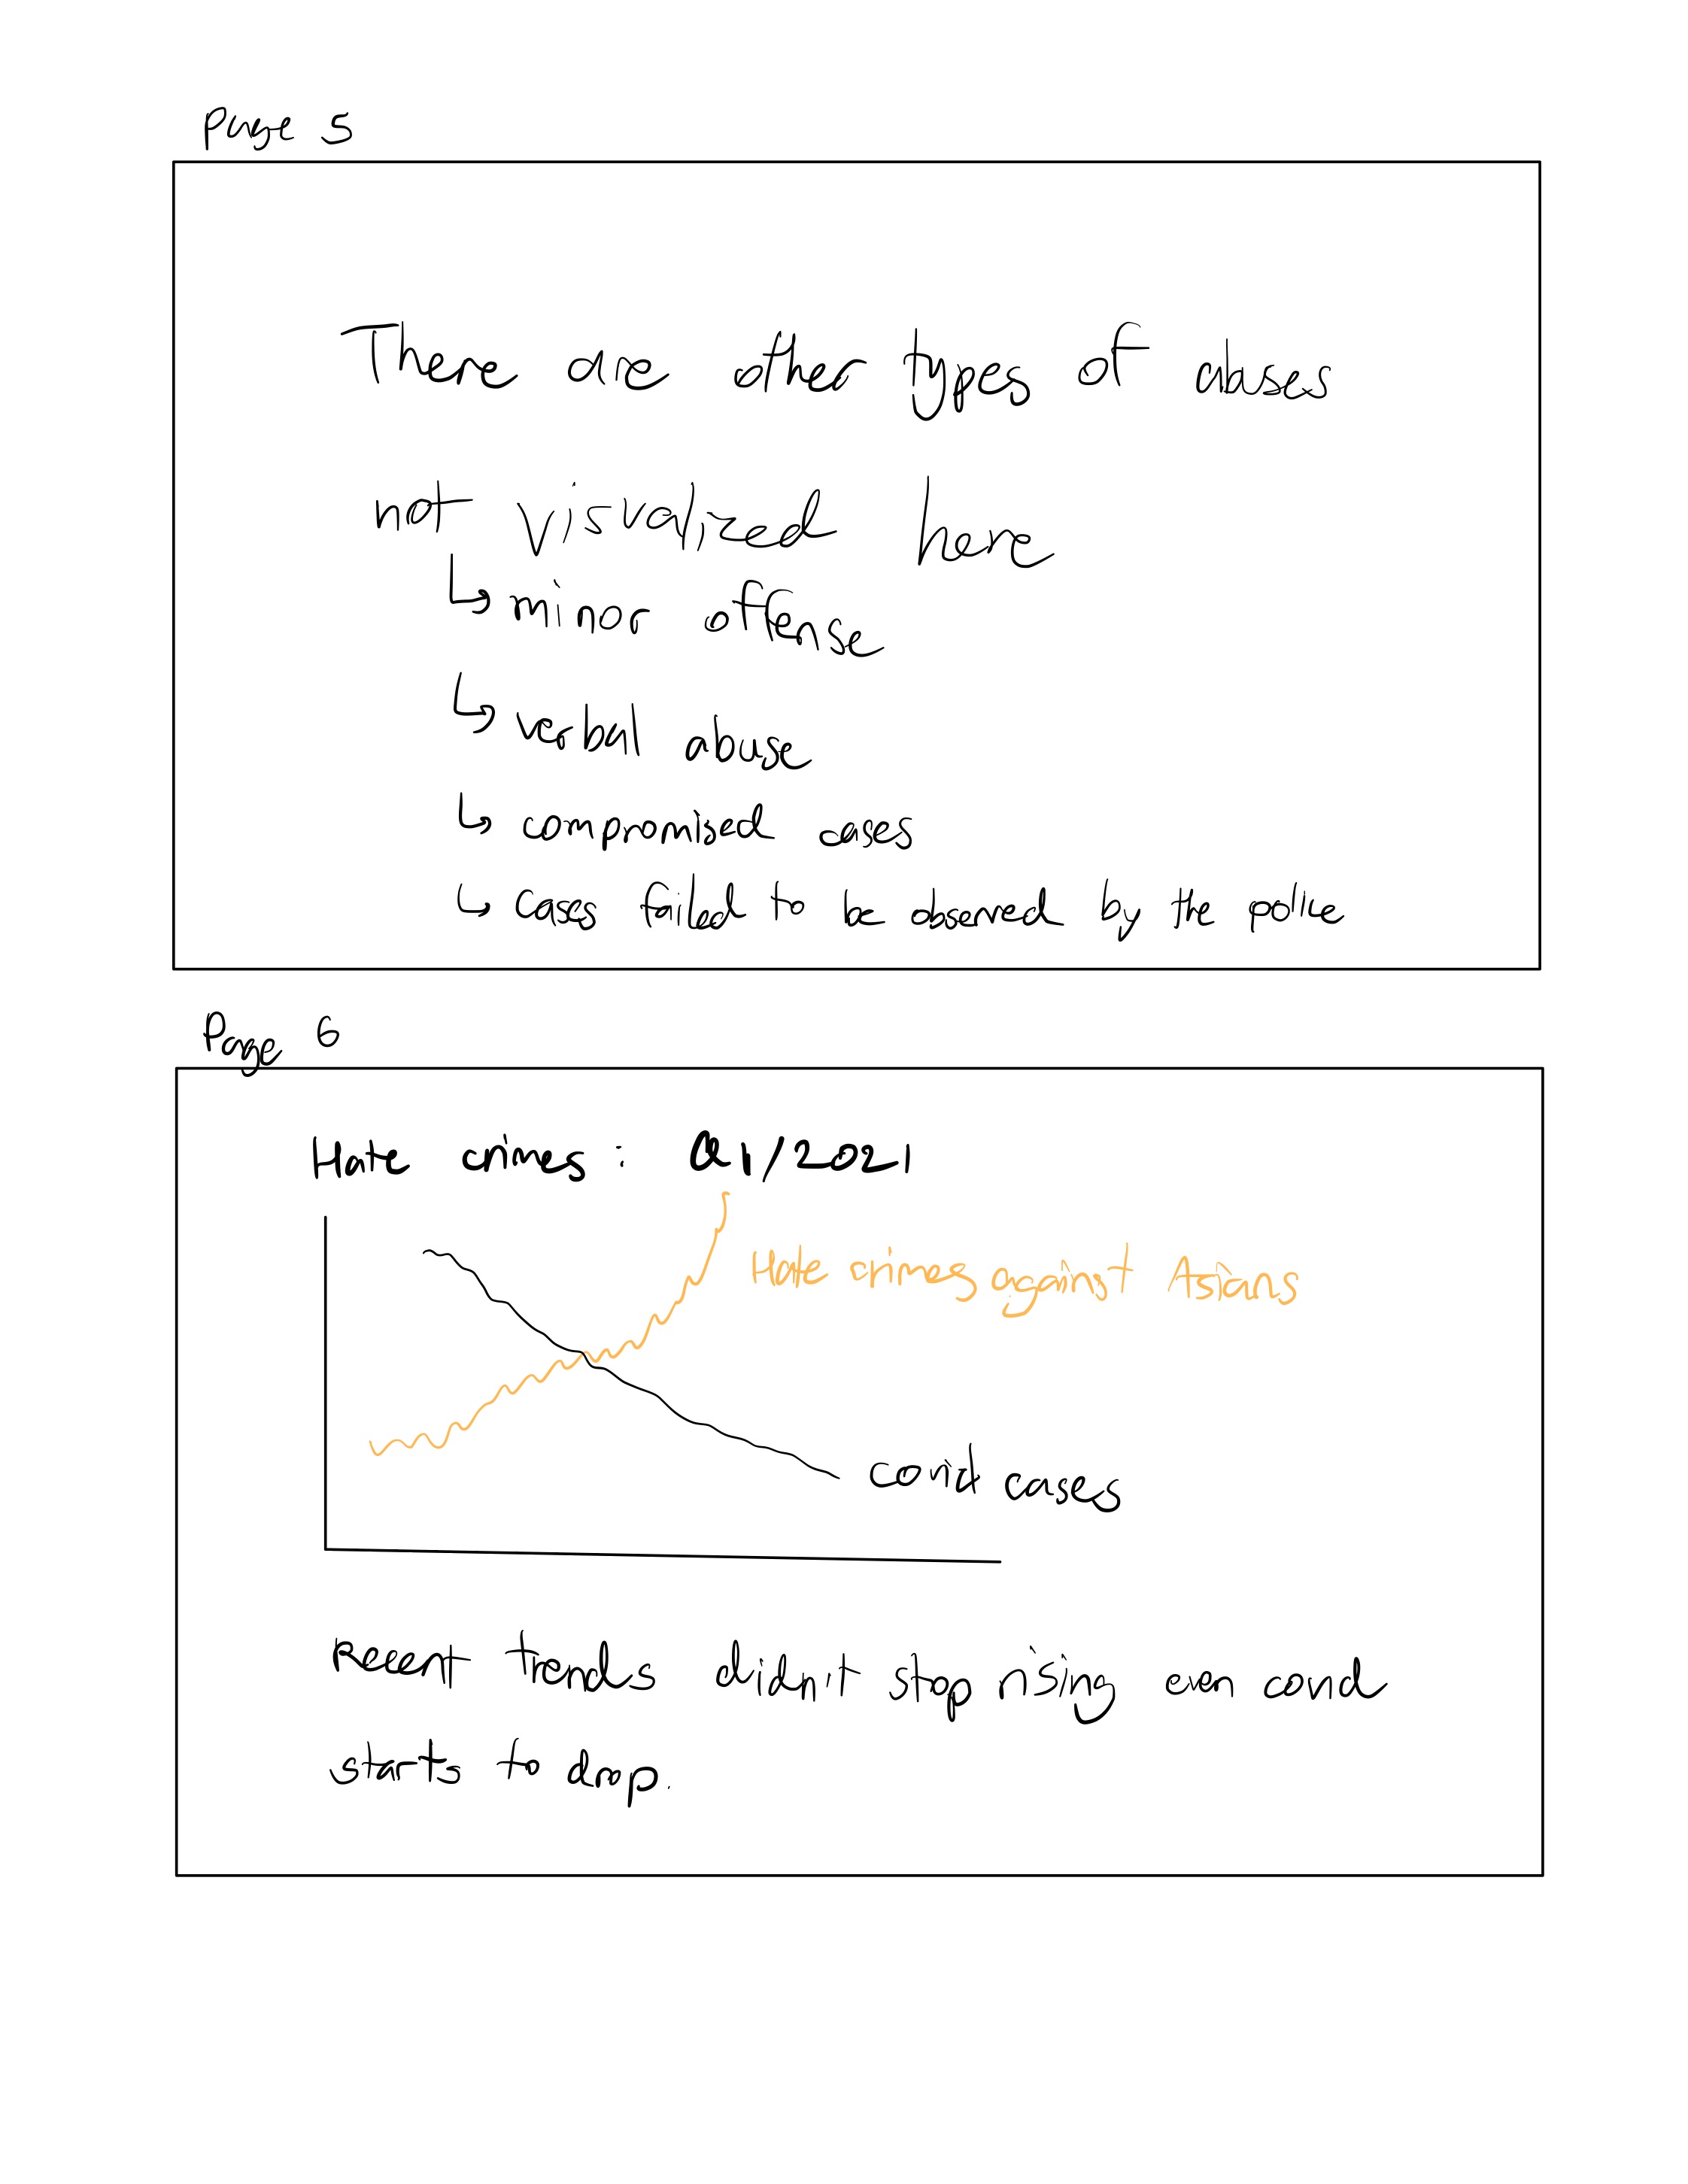 Page 5
There are other types of abuses
not visualized here
↳ minor offense
↳ verbal abuse
↳ compromised cases
↳ cases failed to be observed by the police
Page 6
Hate crimes: Q1/2021
Hate crimes against Asians
covid cases
Recent trends didn't stop rising even covid
starts to drop.